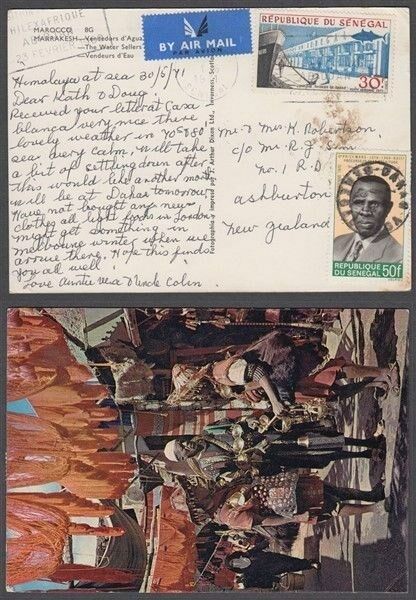 PHILEXAFRIQUE
MAROCCO 8G
MARRAKESH - Vendedors d'Agua
- The Water Sellers
- Vendeurs d'Eau
BY AIR MAIL
PAR AVION
RÉPUBLIQUE DU SÉNÉGAL
30F
Himalaya at sea 30/5/71
Dear Kath & Doug!
Received your letter at Casa
blanca very nice there
lovely weather in 70-780
sea very calm, will take
a bit of settling down after
this would like another month
will be at Dakar tomorrow.
Have not bought any new
clothes all light foods in London
might get something in
melbourne winter when we
arrive there. Hope this finds
you all well!
Love Auntie Vera & Uncle Colin
Fotografia e impressed por J. Arthur Dixon Ltd., Inverness, Scotland
Mr & Mrs K. Robertson,
c/o Mr R. J. Sim
no. 1 R.D.
ashburton
new zealand
RÉPUBLIQUE
DU SÉNÉGAL 50F